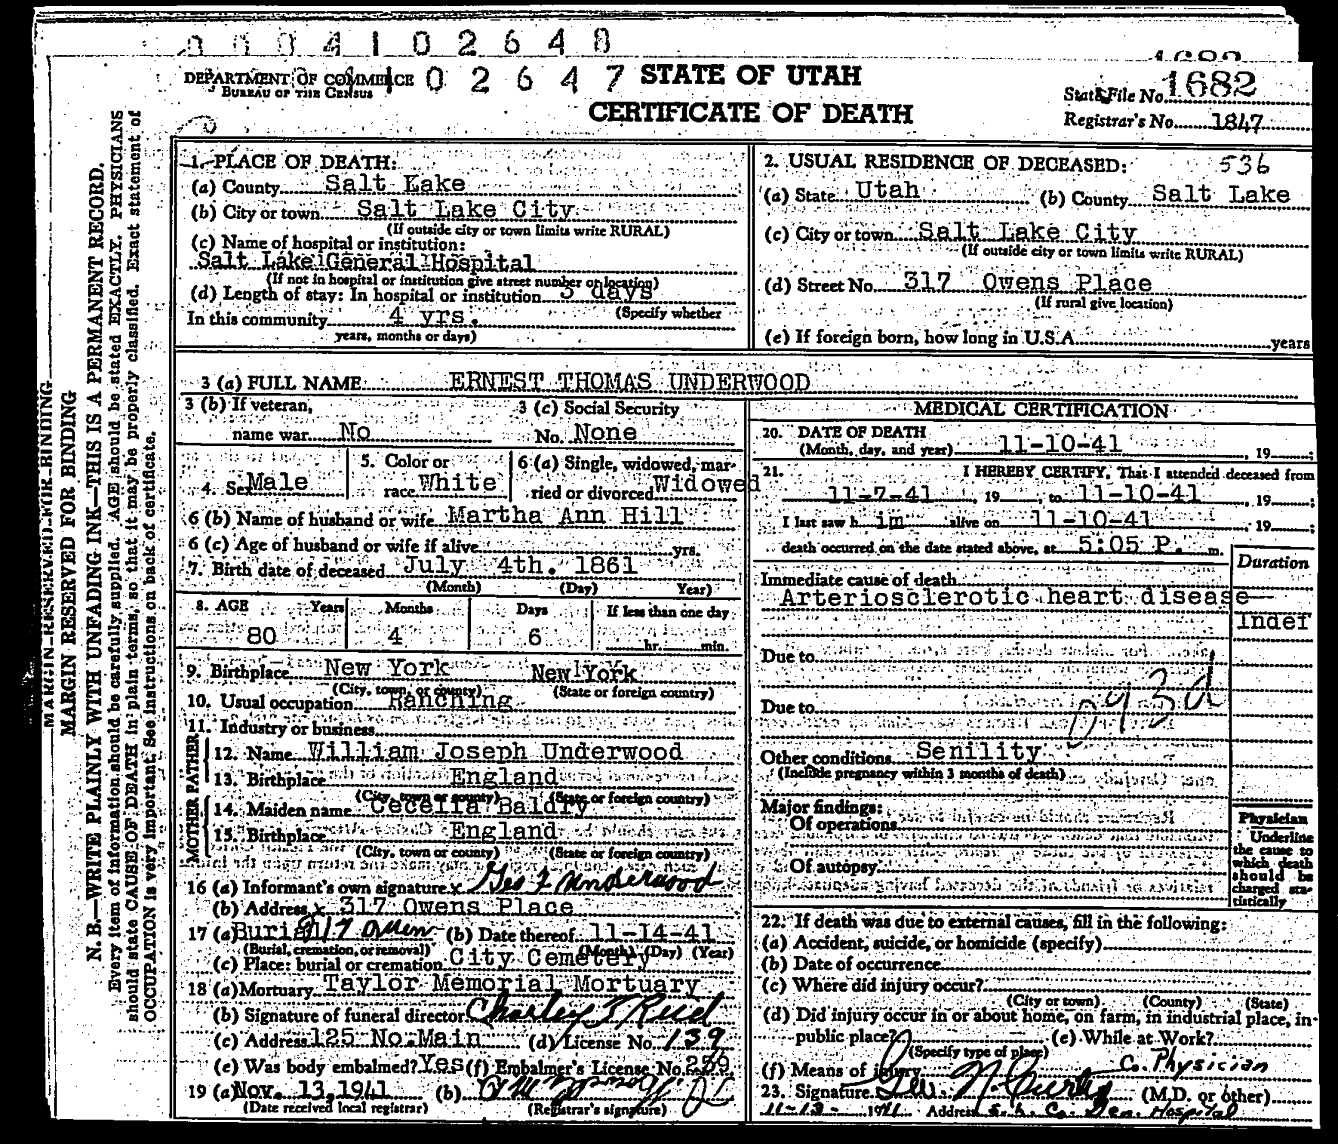 0004102648
DEPARTMENT OF COMMERCE
BUREAU OF THE CENSUS
102647
STATE OF UTAH
CERTIFICATE OF DEATH
State File No. 1682
Registrar's No. 1847
MARGIN RESERVED FOR BINDING
MARGIN RESERVED FOR BINDING
N. B.—WRITE PLAINLY WITH UNFADING INK—THIS IS A PERMANENT RECORD.
Every item of information should be carefully supplied. AGE should be stated EXACTLY. PHYSICIANS
should state CAUSE OF DEATH in plain terms, so that it may be properly classified. Exact statement of
OCCUPATION is very important. See instructions on back of certificate.
1. PLACE OF DEATH:
(a) County Salt Lake
(b) City or town Salt Lake City
(If outside city or town limits write RURAL)
(c) Name of hospital or institution:
Salt Lake General Hospital
(If not in hospital or institution give street number or location)
(d) Length of stay: In hospital or institution 3 days
(Specify whether
In this community 4 yrs.
years, months or days)
2. USUAL RESIDENCE OF DECEASED: 536
(a) State Utah (b) County Salt Lake
(c) City or town Salt Lake City
(If outside city or town limits write RURAL)
(d) Street No. 317 Owens Place
(If rural give location)
(e) If foreign born, how long in U.S.A. years
3 (a) FULL NAME ERNEST THOMAS UNDERWOOD
3 (b) If veteran,
name war No
3 (c) Social Security
No. None
4. Sex Male
5. Color or
race White
6 (a) Single, widowed, mar-
ried or divorced Widowed
6 (b) Name of husband or wife Martha Ann Hill
6 (c) Age of husband or wife if alive yrs.
7. Birth date of deceased July 4th. 1861
(Month) (Day) Year)
8. AGE Years Months Days If less than one day
80 4 6 hr. min.
9. Birthplace New York New York
(City, town, or county) (State or foreign country)
10. Usual occupation Ranching
11. Industry or business
FATHER
12. Name William Joseph Underwood
13. Birthplace England
(City, town or county) (State or foreign country)
MOTHER
14. Maiden name Cecelia Baldry
15. Birthplace England
(City, town or county) (State or foreign country)
16 (a) Informant's own signature x Geo F Underwood
(b) Address x 317 Owens Place
17 (a) Burial 317 Owen (b) Date thereof 11-14-41
(Burial, cremation, or removal) (Month) (Day) (Year)
(c) Place: burial or cremation City Cemetery
18 (a) Mortuary Taylor Memorial Mortuary
(b) Signature of funeral director Charley T Reid
(c) Address 125 No. Main (d) License No. 139
(e) Was body embalmed? Yes (f) Embalmer's License No. 259
19 (a) Nov. 13,1941 (b)
(Date received local registrar) (Registrar's signature)
MEDICAL CERTIFICATION
20. DATE OF DEATH
(Month, day, and year) 11-10-41, 19
21. I HEREBY CERTIFY, That I attended deceased from
11-7-41, 19, to 11-10-41, 19;
I last saw h im alive on 11-10-41, 19;
death occurred on the date stated above, at 5:05 P. m.
Duration
Immediate cause of death
Arteriosclerotic heart disease
Indef
Due to
Due to
93d
Other conditions Senility
(Include pregnancy within 3 months of death)
Major findings:
Of operations
Of autopsy
Physician
Underline
the cause to
which death
should be
charged sta-
tistically
22. If death was due to external causes, fill in the following:
(a) Accident, suicide, or homicide (specify)
(b) Date of occurrence
(c) Where did injury occur?
(City or town) (County) (State)
(d) Did injury occur in or about home, on farm, in industrial place, in
public place? (e) While at Work?
(Specify type of place)
(f) Means of injury Co. Physician
23. Signature Geo. N. Curtis (M.D. or other)
11-13- 1941 Address S. L. Co. Gen. Hospital